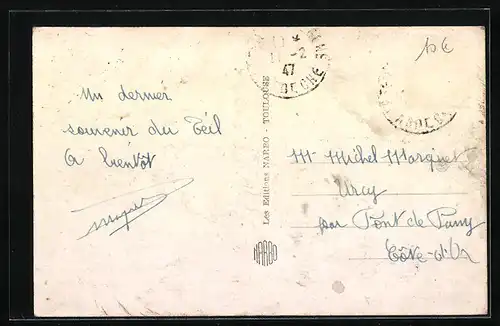 10€
-2
47
DECHE
Un dernier
souvenir du Teil
A bientôt
Les Editions NARBO - TOULOUSE
NARBO
Mr Michel Marquet
Urcy
par Pont de Pany
Côte-d'Or